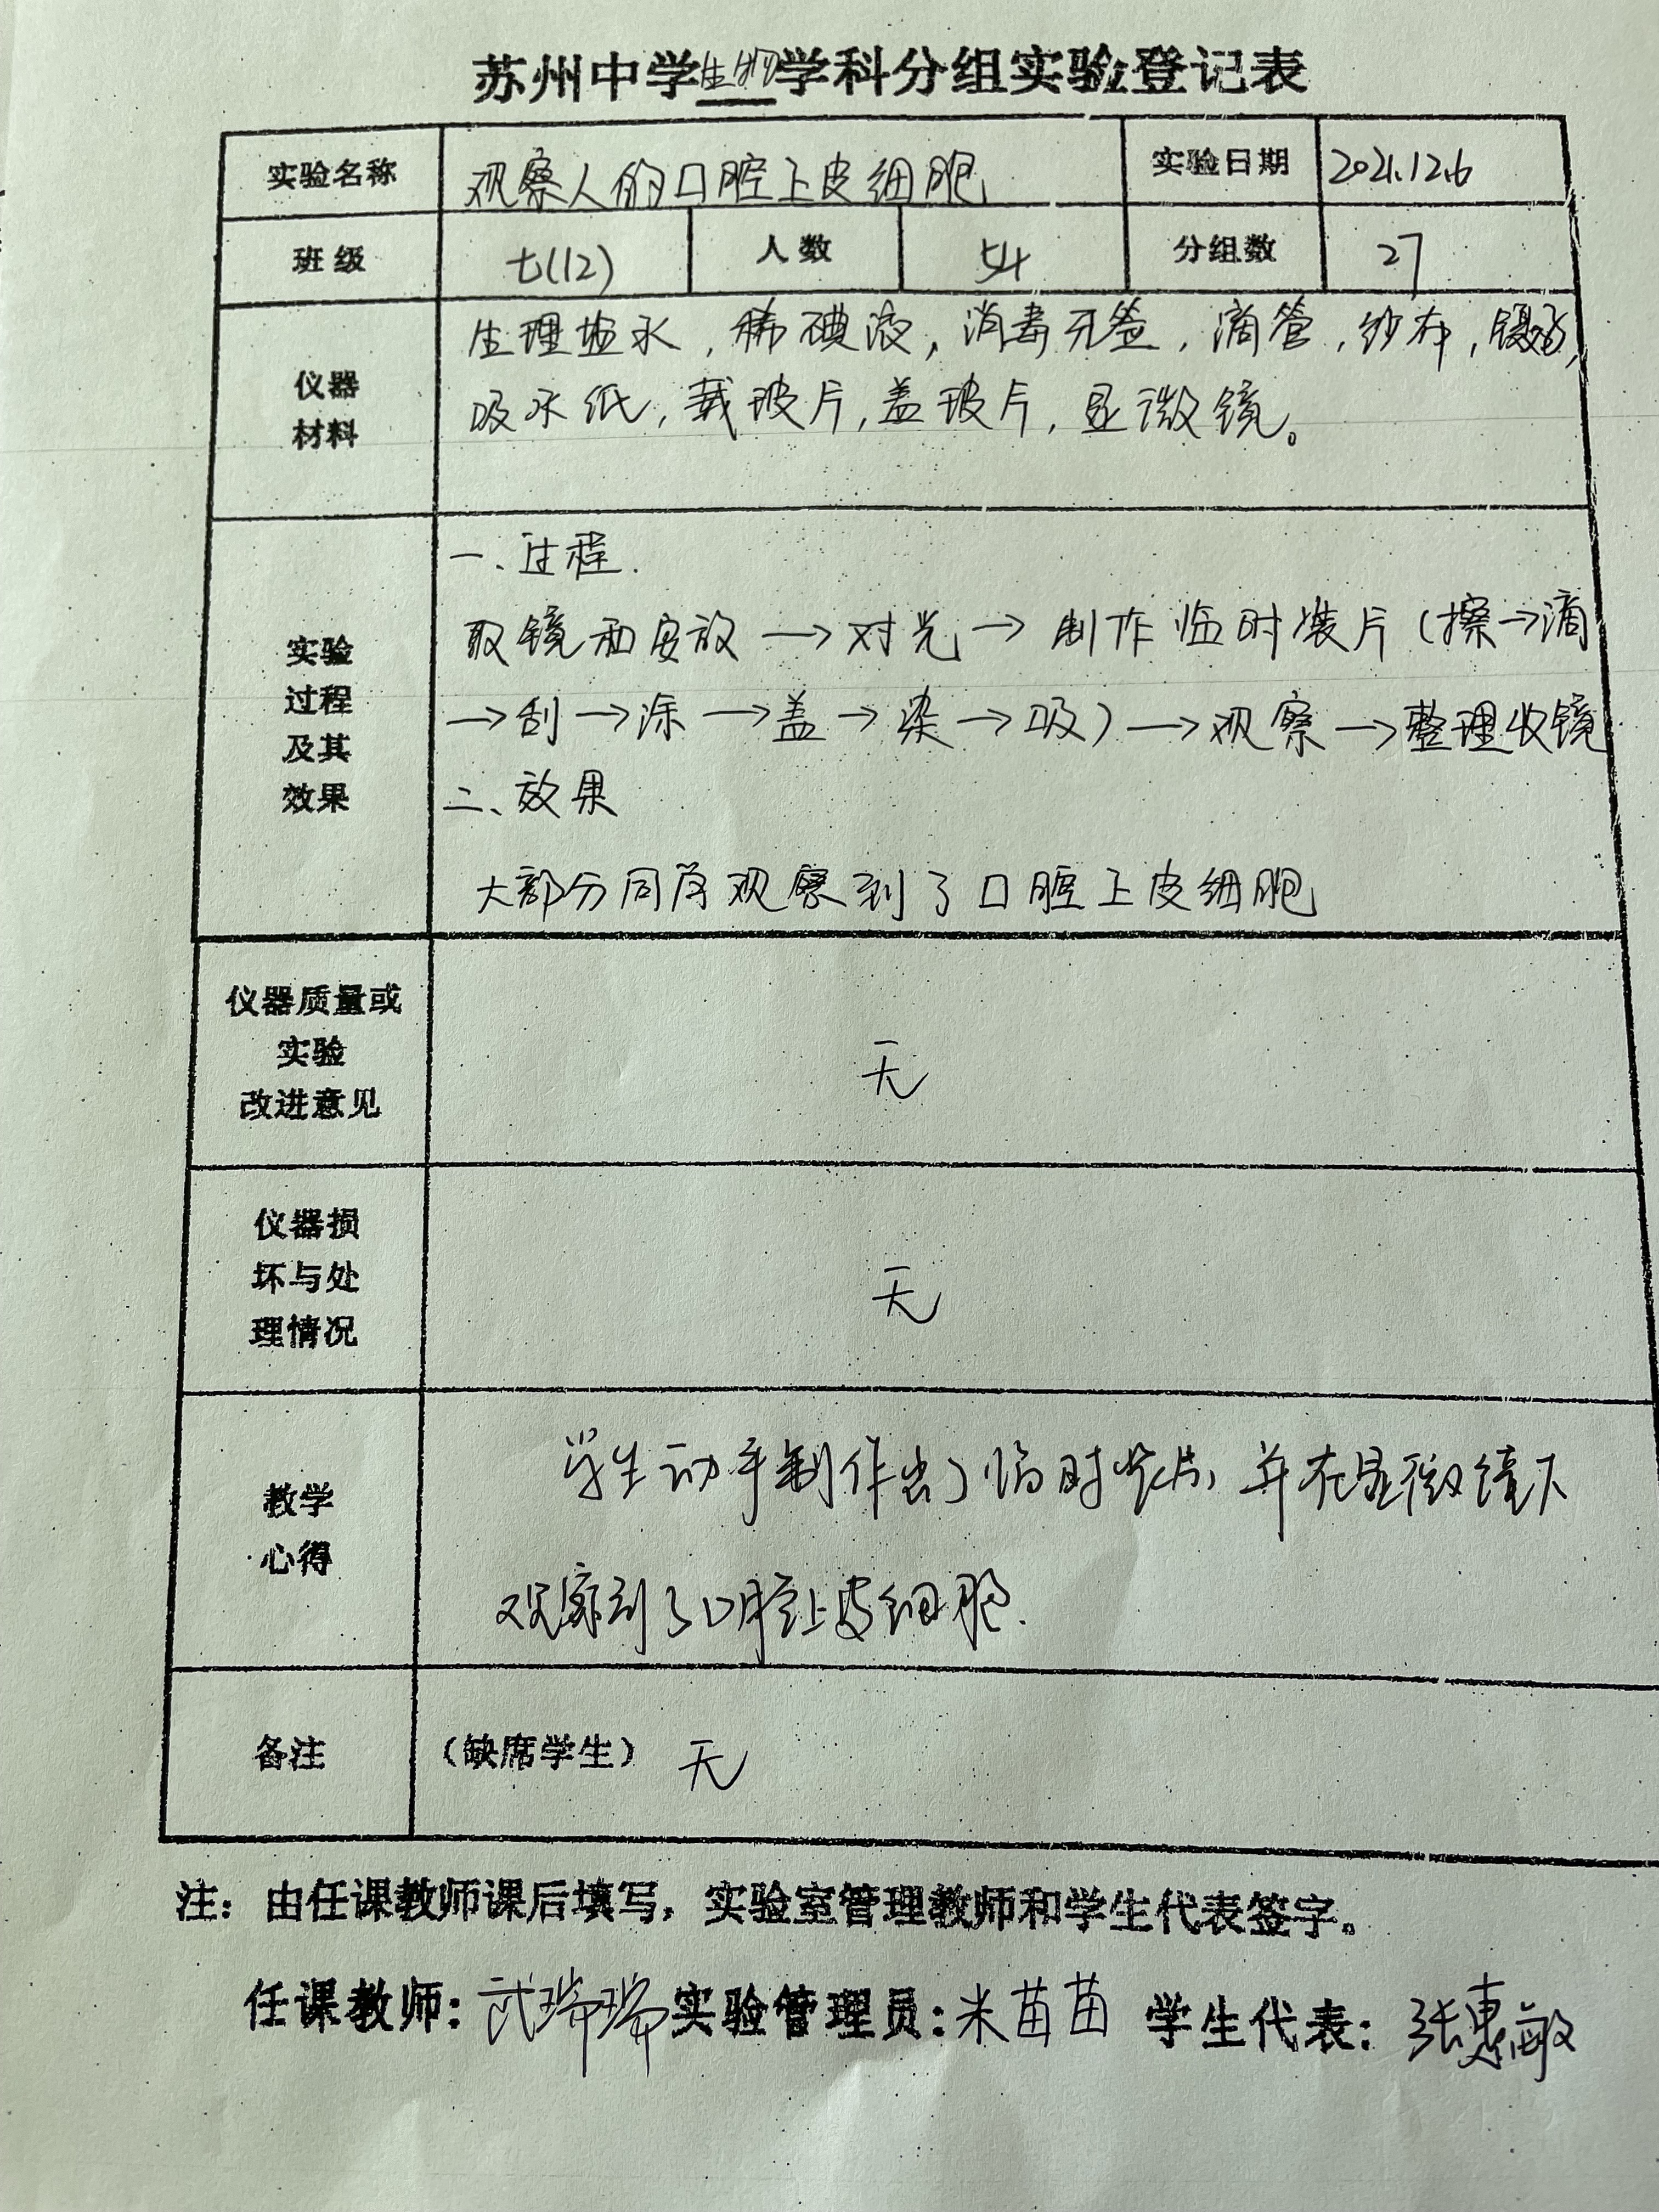 苏州中学生物学科分组实验登记表
实验名称 观察人的口腔上皮细胞 实验日期 2021.12.6
班级 七(12) 人数 54 分组数 27
仪器
材料
生理盐水，稀碘液，消毒牙签，滴管，纱布，镊子，
吸水纸，载玻片，盖玻片，显微镜。
实验
过程
及其
效果
一、过程.
取镜和安放→对光→制作临时装片（擦→滴
→刮→涂→盖→染→吸）→观察→整理收镜
二、效果
大部分同学观察到了口腔上皮细胞
仪器质量或
实验
改进意见
无
仪器损
坏与处
理情况
无
教学
心得
学生动手制作出了临时装片，并在显微镜下
观察到了口腔上皮细胞.
备注 （缺席学生） 无
注：由任课教师课后填写，实验室管理教师和学生代表签字。
任课教师：武瑞瑞 实验管理员：米苗苗 学生代表：张惠敏